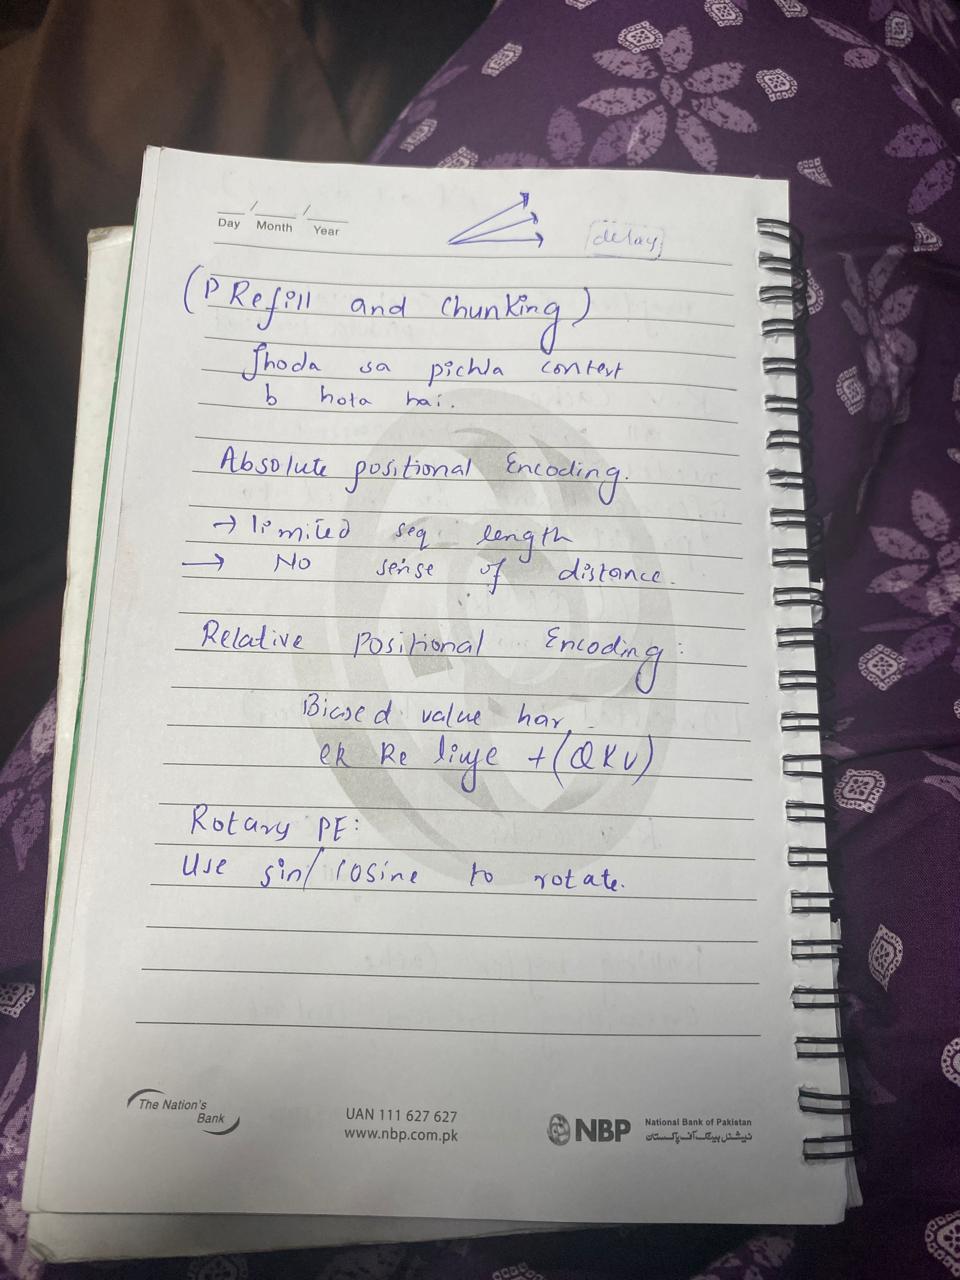 Day / Month / Year
delay
(PRefill and Chunking)
thoda sa pichla context
b hota hai.
Absolute positional Encoding.
→ limited seq. length
→ No sense of distance.
Relative Positional Encoding:
Biased value har
ek ke liye +(QKV)
Rotary PE:
Use sin/cosine to rotate.
The Nation's
Bank
UAN 111 627 627
www.nbp.com.pk
NBP
National Bank of Pakistan
نیشنل بینک آف پاکستان